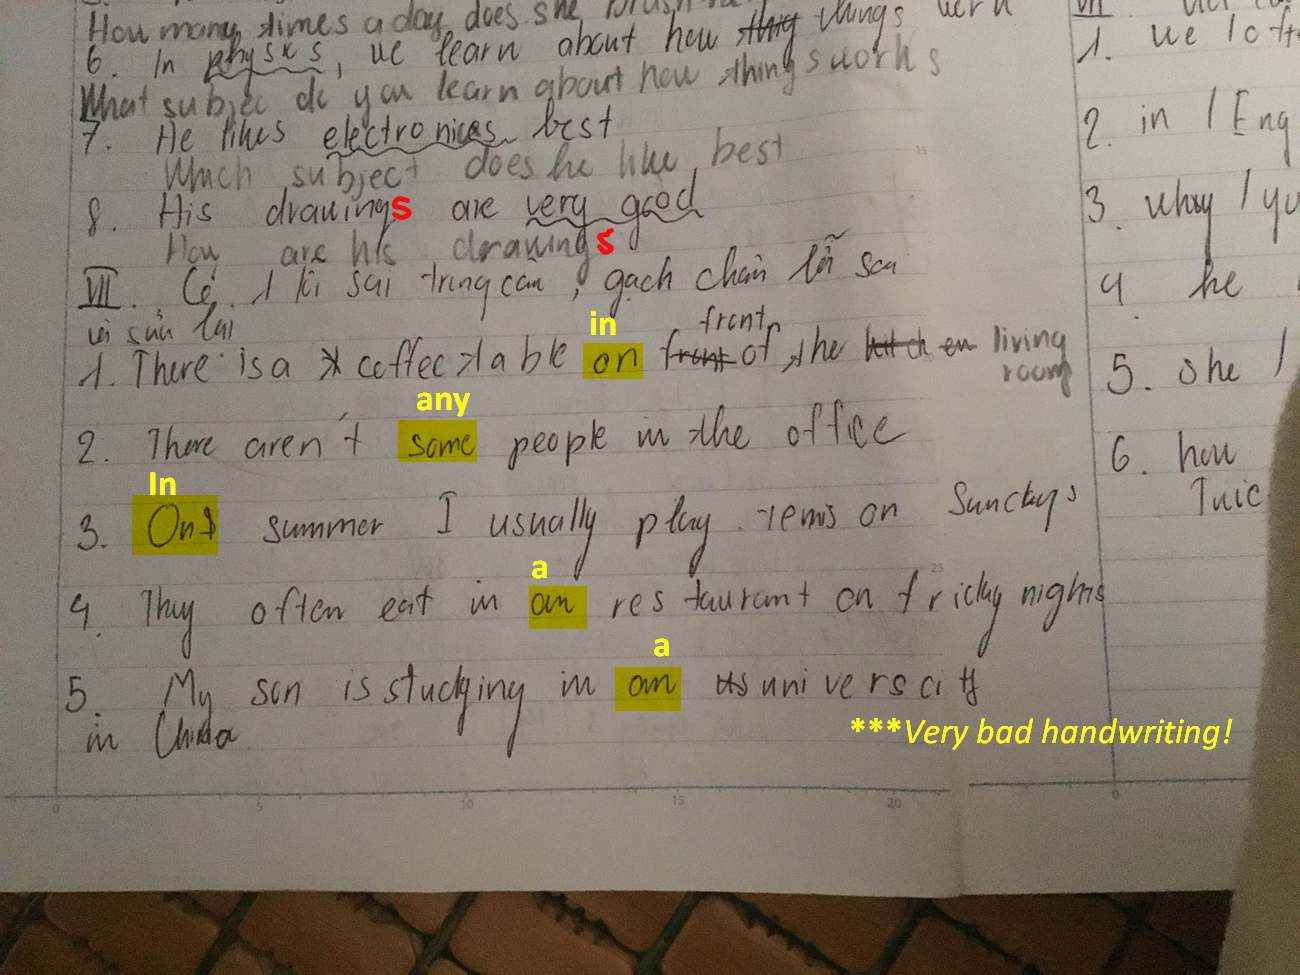 How many times a day does she brush
6. In physics, we learn about how thing things work
What subjec do you learn about how things works
7. He likes electronices best
Which subject does he like best
8. His drawings are very good
How are his drawings
VII. Có 1 lỗi sai trong câu, gạch chân lỗi sai
và sửa lại
in front
1. There is a coffee table on front of the kitchen living
room
any
2. There aren't some people in the office
In
3. On summer I usually play tennis on Sundays
a
4. They often eat in an restaurant on friday nights
a
5. My son is studying in an universcity
in China
***Very bad handwriting!
0 5 10 15 20
VII
1. we
2. in / Eng
3. why / you
4. he
5. she /
6. how
Twic
0